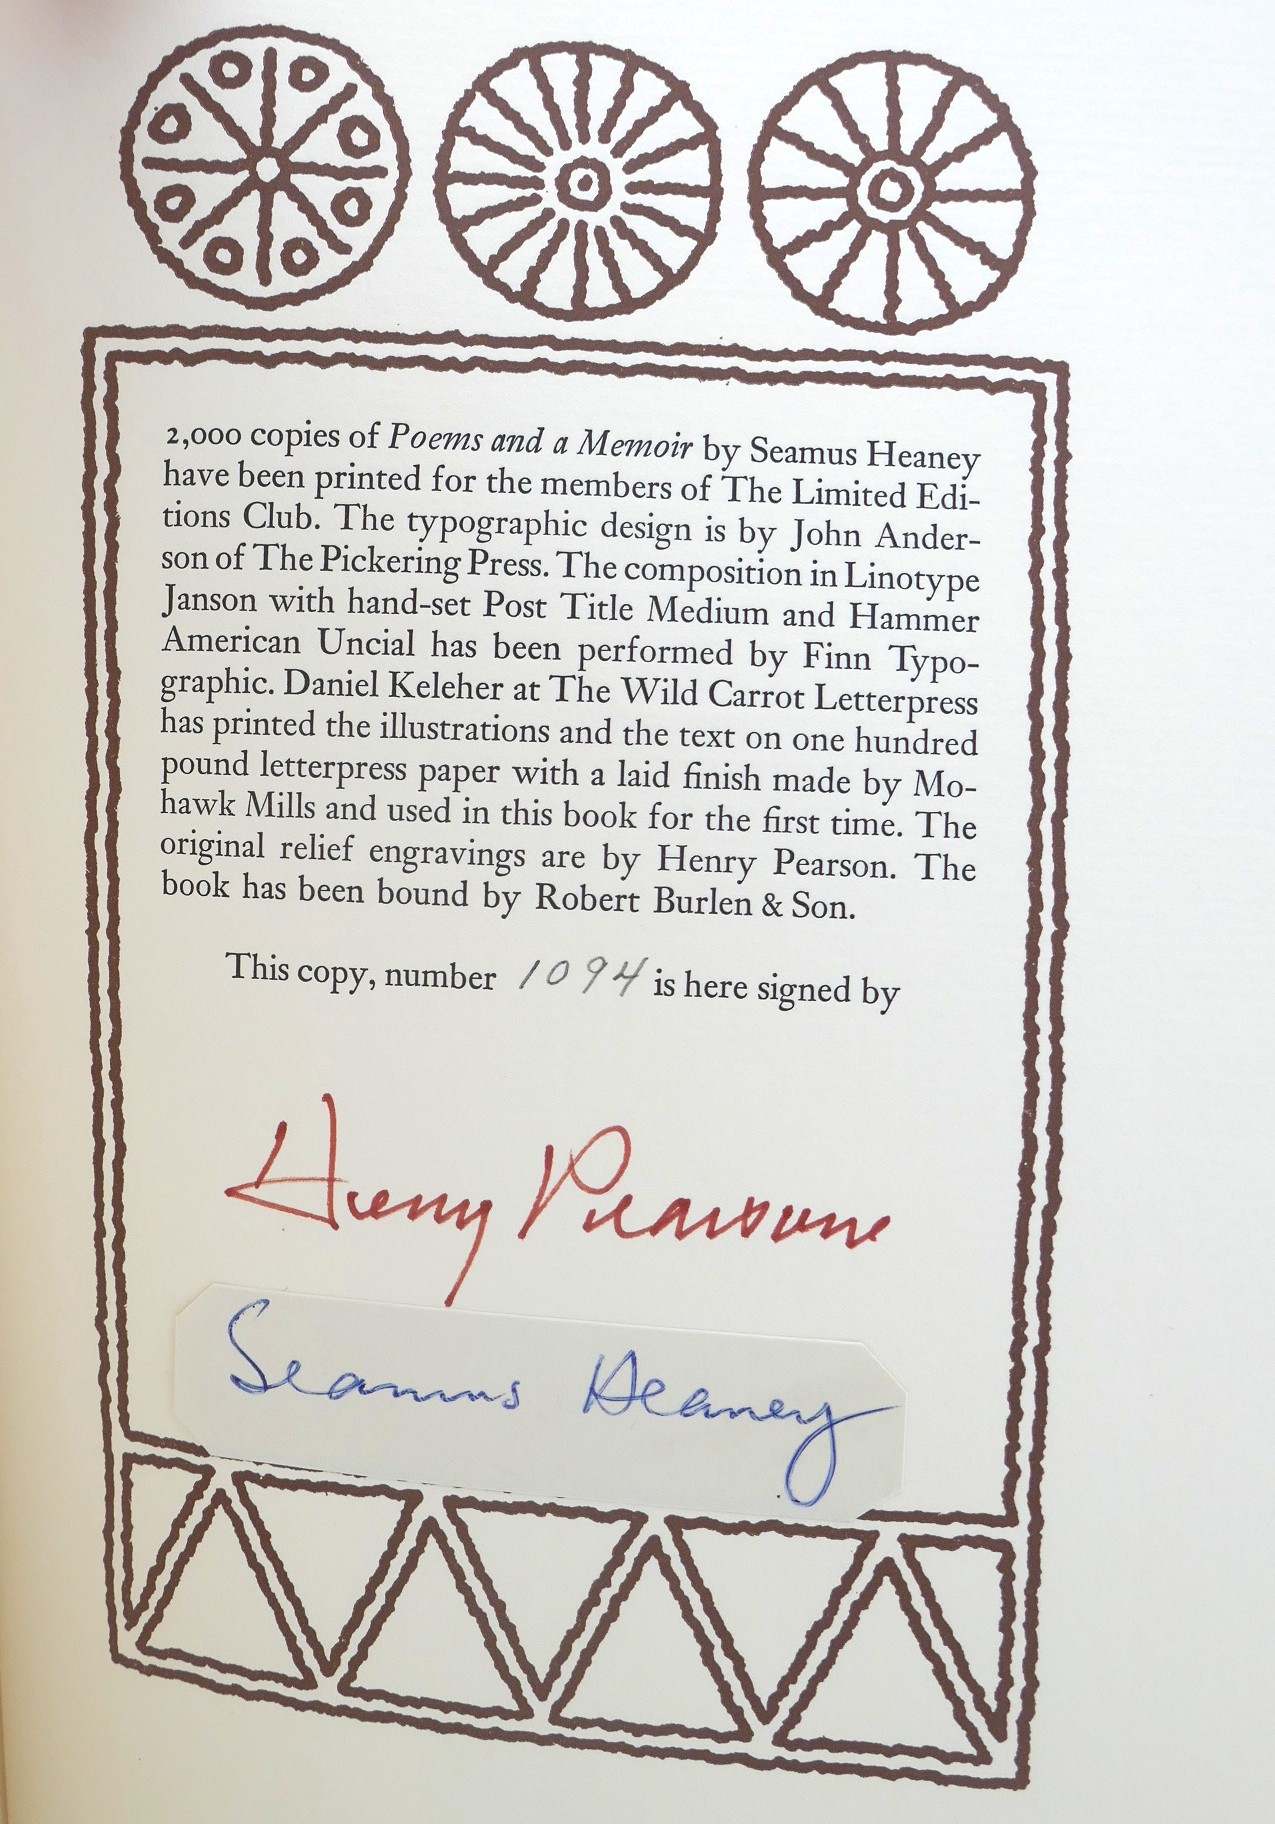 2,000 copies of Poems and a Memoir by Seamus Heaney
have been printed for the members of The Limited Edi-
tions Club. The typographic design is by John Ander-
son of The Pickering Press. The composition in Linotype
Janson with hand-set Post Title Medium and Hammer
American Uncial has been performed by Finn Typo-
graphic. Daniel Keleher at The Wild Carrot Letterpress
has printed the illustrations and the text on one hundred
pound letterpress paper with a laid finish made by Mo-
hawk Mills and used in this book for the first time. The
original relief engravings are by Henry Pearson. The
book has been bound by Robert Burlen & Son.
This copy, number 1094 is here signed by
Henry Pearson
Seamus Heaney